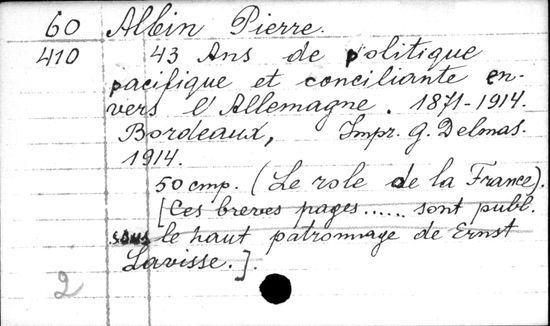 60 Albin Pierre.
410 43 Ans de politique
pacifique et conciliante en-
vers l'Allemagne. 1871-1914.
Bordeaux, Impr. G. Delmas.
1914.
50 cmp. (Le role de la France).
[Ces breves pages...... sont publ.
sous le haut patronnage de Ernst
Lavisse.].
2